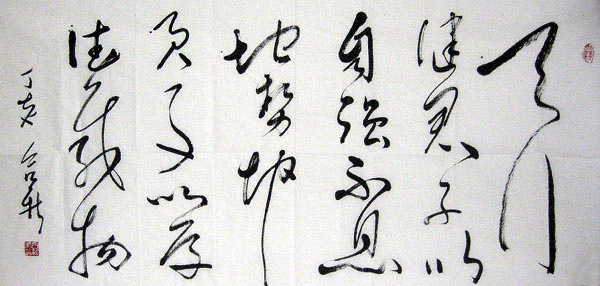 天行
健君子以
自强不息
地势坤
君子以厚
德载物
丁亥